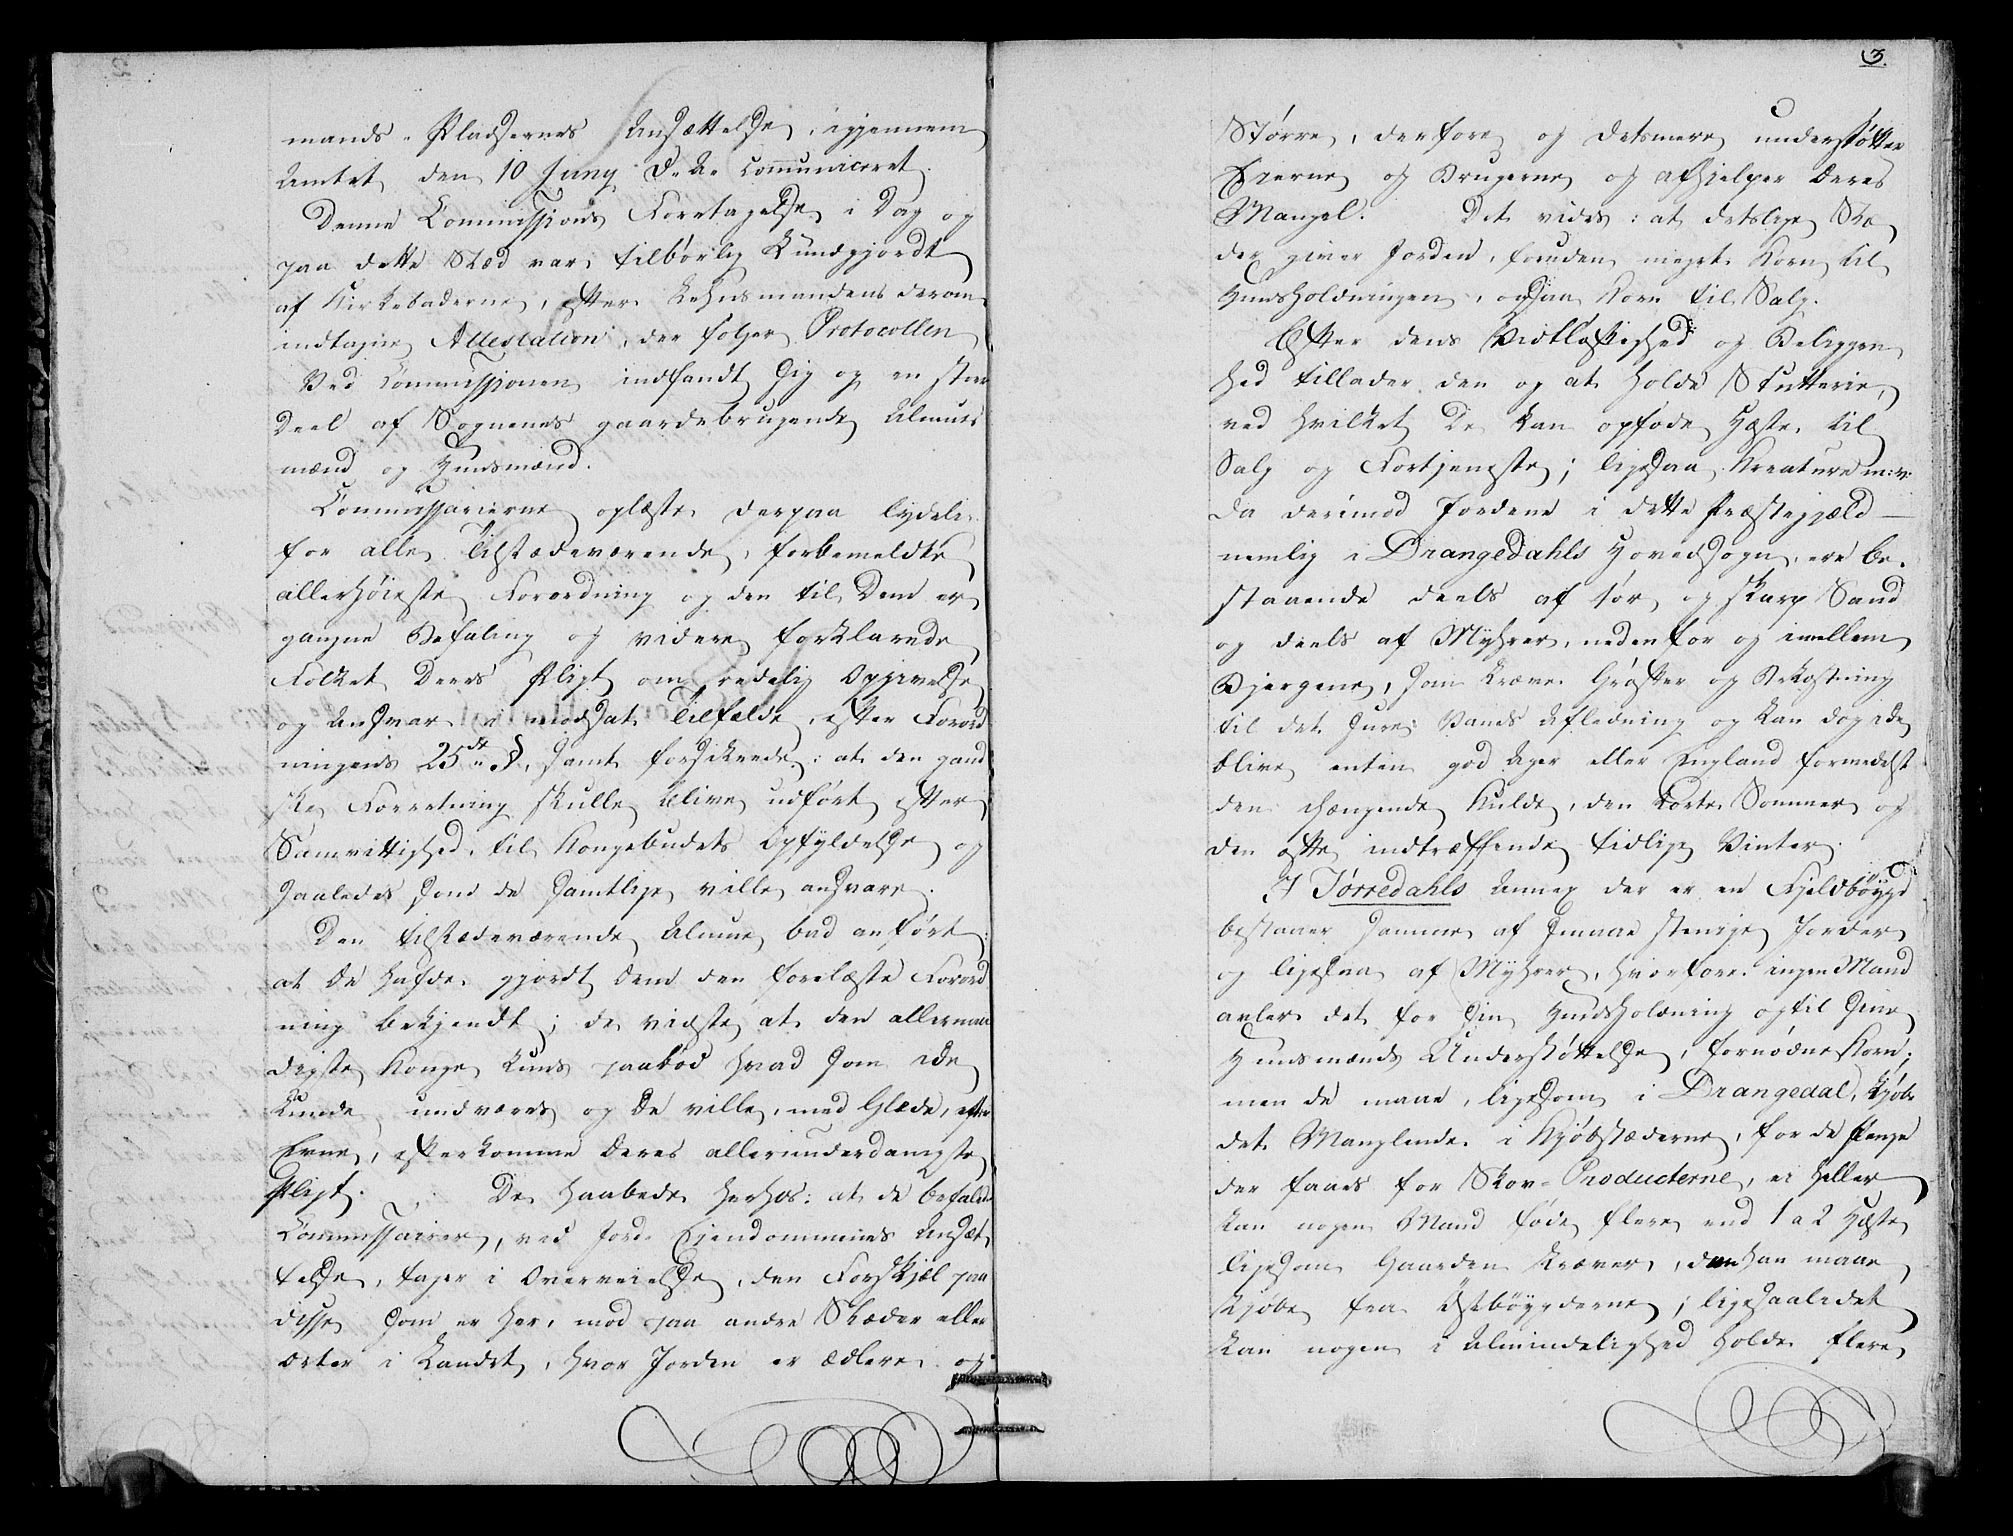 mands-Pladsernes Ansættelse, igjennem
Amtet den 10 Juny d. A. Communiceret.
Denne Commissions Foretagelse i Dag og
paa dette Stæd var tilbørlig Kundgjordt
af Kirkebakkerne, efter Lehnsmandens derom
indtagne Attestation, der følger Protocollen
Ved Commissionen indfandt sig og en stor
Deel af Sognenes gaardebrugende Almues
mænd og Huusmænd.
Commissarierne oplæste derpaa lydelig
for alle Tilstædeværende, forbemeldte
allerhøieste Forordning og den til Dem er
gangne Befaling og videre forklarede
Folket Deres Pligt om redelig Opgivelse
og Ansvar i modsat Tilfælde, efter Forord
ningens 25de §, samt forsikrede: at den gand
ske Forretning skulle blive udført efter
Samvittighed, til Kongebudets Opfyldelse og
saaledes som de samtlige ville ansvare.
Den tilstædeværende Almue bad anført:
at de hafde gjordt dem den forelæste Forord
ning bekjendt; de vidste at den allernaa
digste Konge kuns paabød hvad som ide
kunde undværes og de ville, med Glæde, efter
Evne, efterkomme deres allerunderdanigste
Pligt. De haabede herhos: at de befalede
Commissairer, ved Jord-Eiendommenes Ansæt
telse, tager i Overveielse, den Forskjæl paa
disse som er her, mod paa andre Stæder eller
Orter i Landet, hvor Jorden er ædlere og
3.
Større, derfore og detsmere understøtter
Eierne og Brugerne og afhjelper deres
Mangel. Det vides: at detslige Stæ
der giver Jorden, foruden meget Korn til
Huusholdningen, ogsaa Korn til Salg.
Efter dens Vidtløftighed og Beliggen
hed tillader den og at holde Stutterie,
ved hvilket De kan opføde Heste til
Salg og Fortjeneste; ligesaa Kreature m: v:
da derimod Jordene i dette Præstegjæld —
nemlig i Drangedahls Hovedsogn, ere be-
staaende deels af tør og skarp Sand
og deels af Myhrer, nedenfor og imellem
Bjergene, som kræver Grøfter og Bekostning
til det sure Vands Afledning og kan dog ide
blive enten god Ager eller England formedelst
den chængende Kulde, den korte Sommer og
den ofte indtræffende tidlige Vinter.
I Tørredahls Annex der er en Fjeldbøygd
bestaaer samme af smaae stenige Jorder
og ligesaa af Myhrer, hvorfore ingen Mand
avler det for sin Huusholdning og til sine
Huusmænds Understøttelse, fornødne Korn;
men de maae, ligesom i Drangedal, kjøbe
det Manglende i Kjøbstæderne, for de Penge
der faaes for Skov-Producterne, ei heller
kan nogen Mand føde flere end 1 a 2 Heste,
ligesom Gaarden kræver, dem han maae
kjøbe fra Østbøygderne; ligesaalidet
kan nogen i Almindelighed holde flere